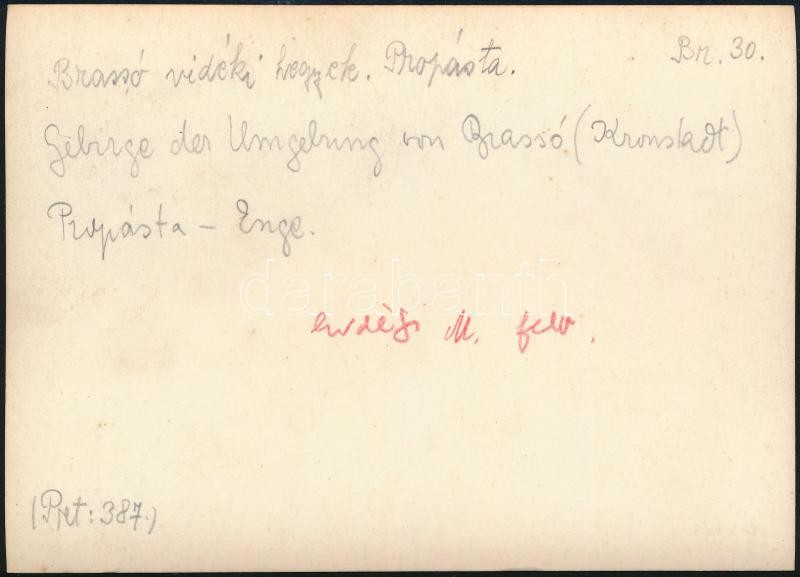 Br. 30.
Brassó vidéki hegyek. Propásta.
Gebirge der Umgebung von Brassó (Kronstadt)
Propásta – Enge.
darabanth
Erdélyi M. felv.
(Prt: 387.)